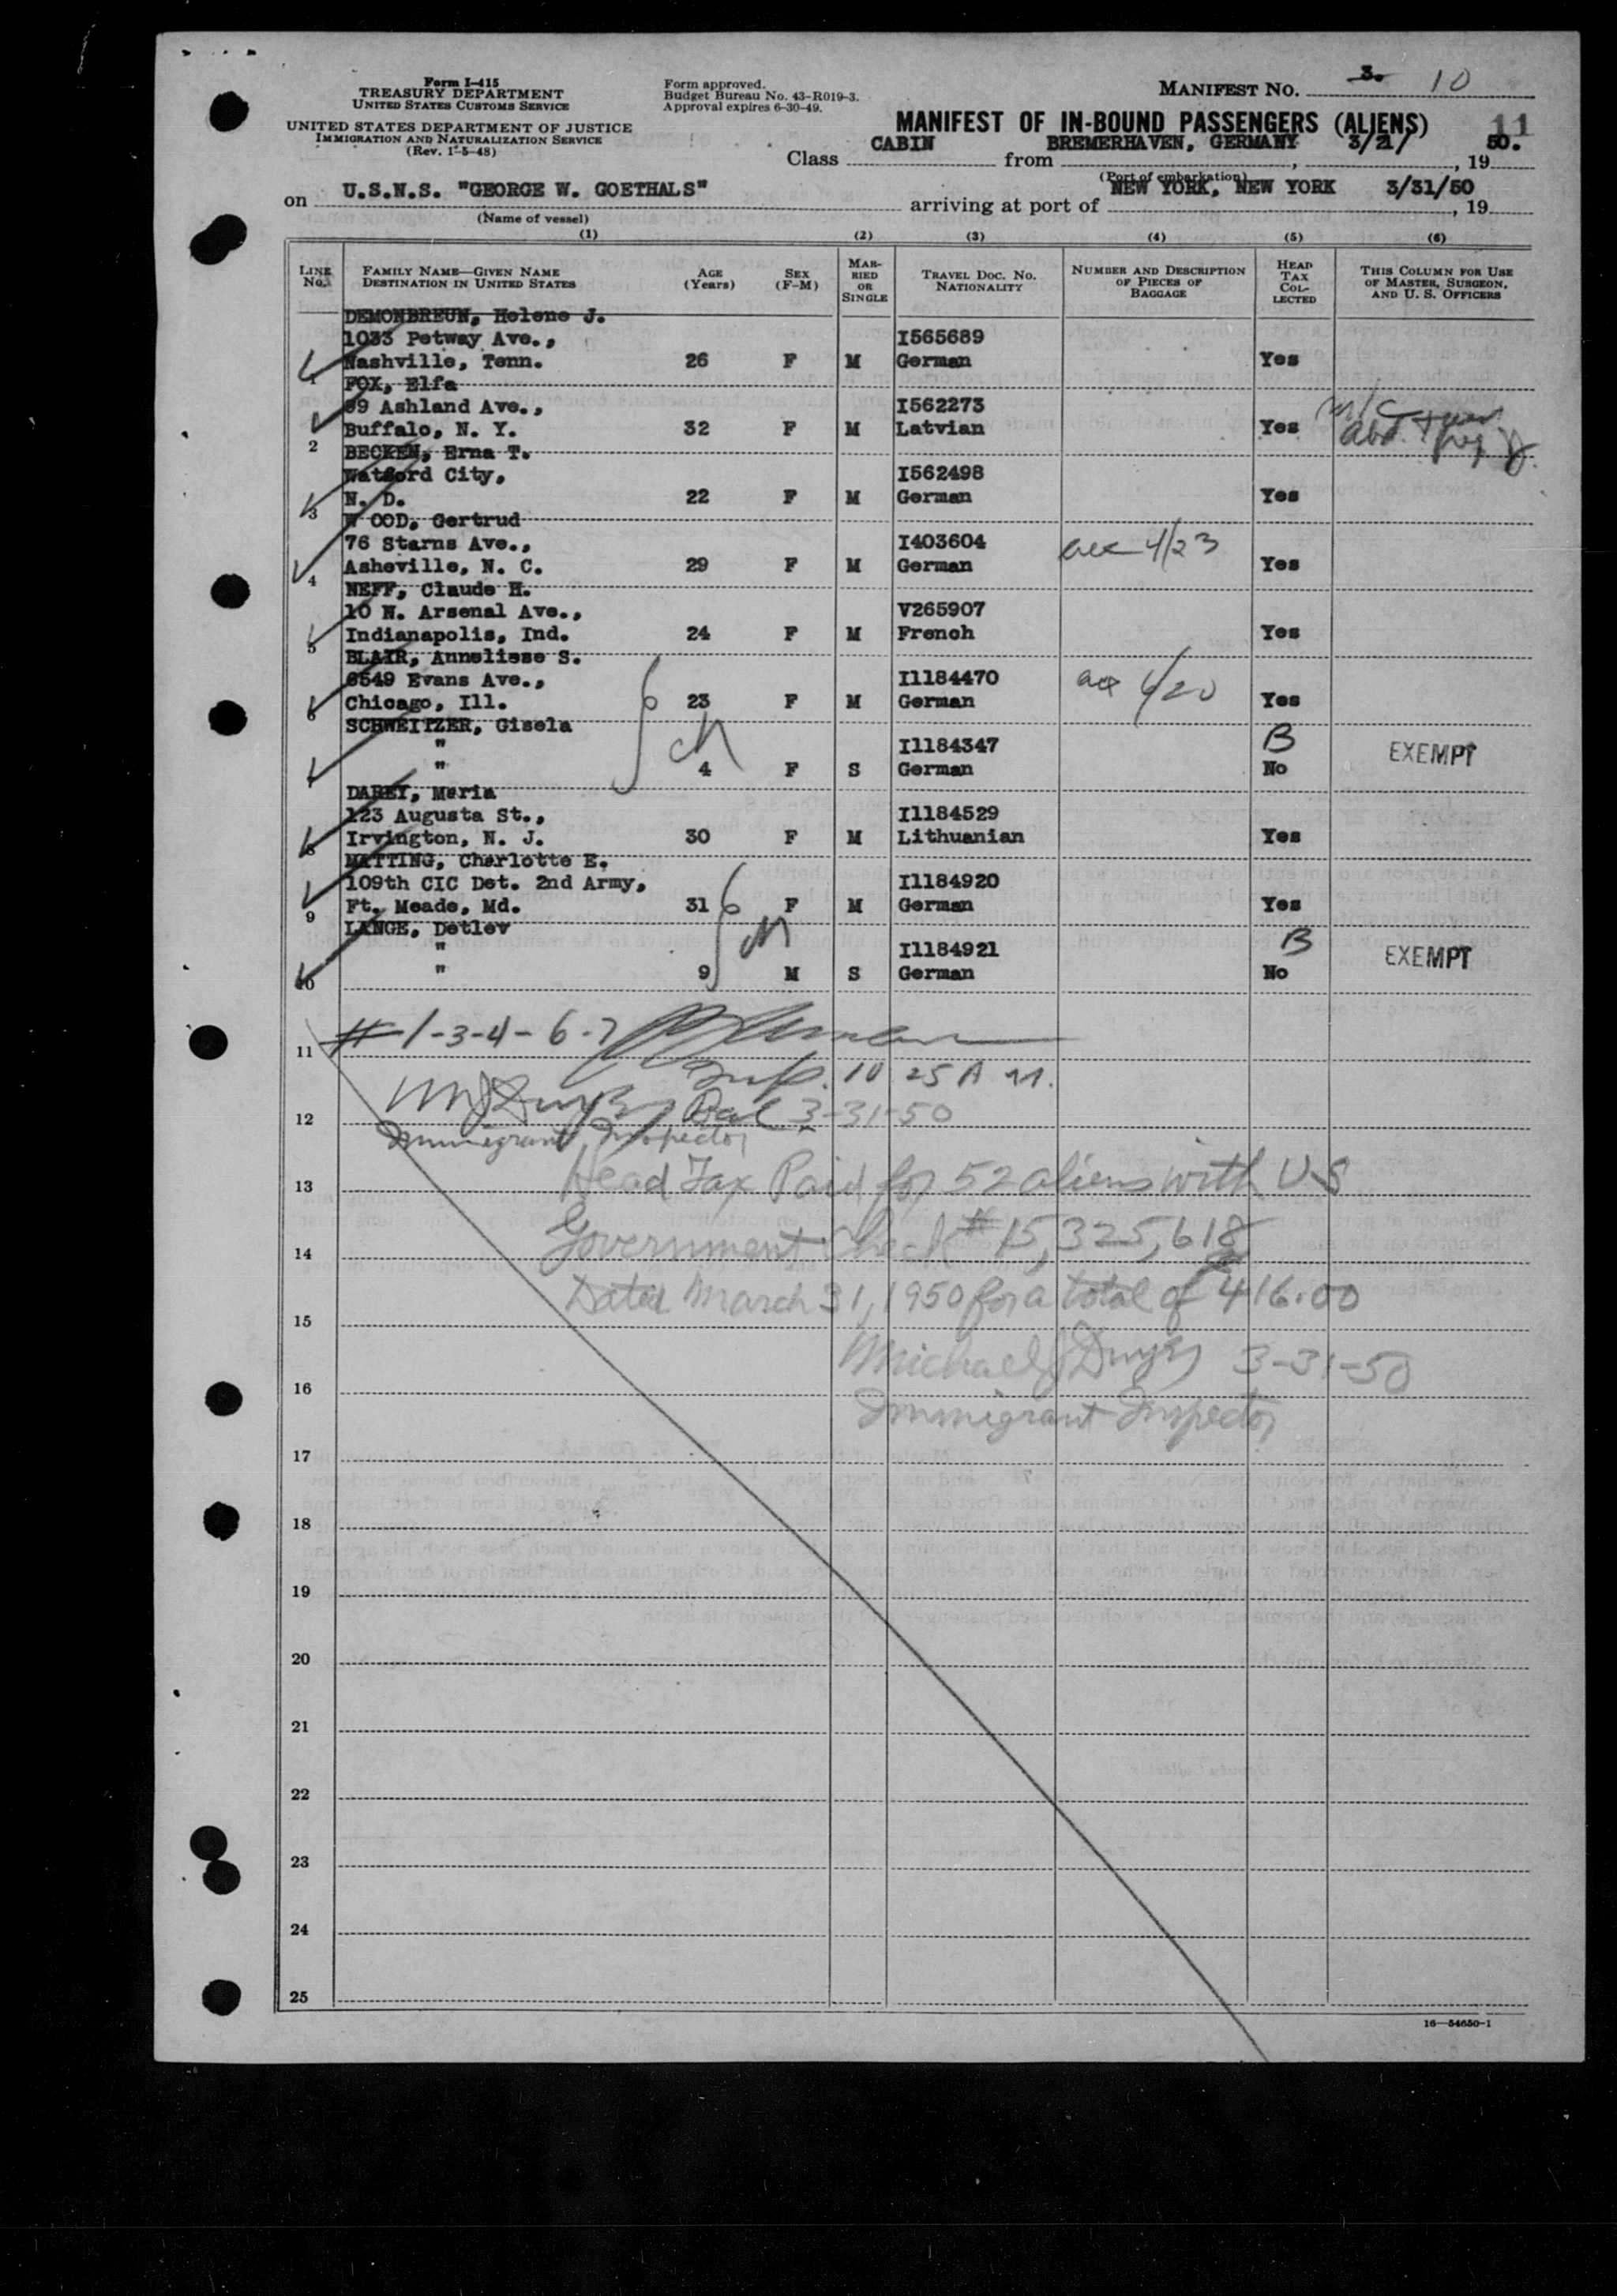 Form I-415
TREASURY DEPARTMENT
UNITED STATES CUSTOMS SERVICE
UNITED STATES DEPARTMENT OF JUSTICE
IMMIGRATION AND NATURALIZATION SERVICE
(Rev. 1-5-48)
Form approved.
Budget Bureau No. 43-R019-3.
Approval expires 6-30-49.
MANIFEST NO. 3. 10
MANIFEST OF IN-BOUND PASSENGERS (ALIENS) 11
Class CABIN from BREMERHAVEN, GERMANY, 3/21/, 19 50.
(Port of embarkation)
on U.S.N.S. "GEORGE W. GOETHALS" arriving at port of NEW YORK, NEW YORK 3/31/50, 19
(Name of vessel)
(1) (2) (3) (4) (5) (6)
LINE No. FAMILY NAME—GIVEN NAME DESTINATION IN UNITED STATES AGE (Years) SEX (F-M) MARRIED OR SINGLE TRAVEL DOC. NO. NATIONALITY NUMBER AND DESCRIPTION OF PIECES OF BAGGAGE HEAD TAX COLLECTED THIS COLUMN FOR USE OF MASTER, SURGEON, AND U. S. OFFICERS
DEMONBREUN, Helene J.
1033 Petway Ave., I565689
1 Nashville, Tenn. 26 F M German Yes
FOX, Elfa
99 Ashland Ave., I562273
2 Buffalo, N. Y. 32 F M Latvian Yes
BECKEN, Erna T.
Watford City, I562498
3 N. D. 22 F M German Yes
W OOD, Gertrud
76 Starns Ave., I403604 4/23
4 Asheville, N. C. 29 F M German Yes
NEFF, Claude H.
10 N. Arsenal Ave., V265907
5 Indianapolis, Ind. 24 F M French Yes
BLAIR, Anneliese S.
6549 Evans Ave., I1184470
6 Chicago, Ill. 23 F M German Yes
SCHWEITZER, Gisela
" I1184347 B EXEMPT
" 4 F S German No
DAREY, Maria
123 Augusta St., I1184529
8 Irvington, N. J. 30 F M Lithuanian Yes
MATTING, Charlotte E.
109th CIC Det. 2nd Army, I1184920
9 Ft. Meade, Md. 31 F M German Yes
LANGE, Detlev
" I1184921 B EXEMPT
10 " 9 M S German No
11 # 1-3-4-6-7
Insp. 10 25 A M.
12 3-31-50
Immigrant Inspector
13 Head Tax Paid for 52 aliens with U S
14 Government Check # 15,325,618
15 Dated March 31, 1950 for a total of 416.00
Michael J Dwyer 3-31-50
16
Immigrant Inspector
17
18
19
20
21
22
23
24
25
16—54650-1